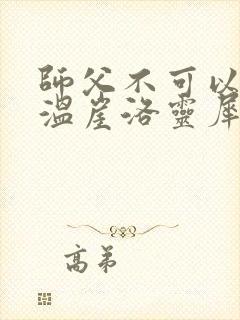 師父不可以
溫崖洛靈犀
高弟